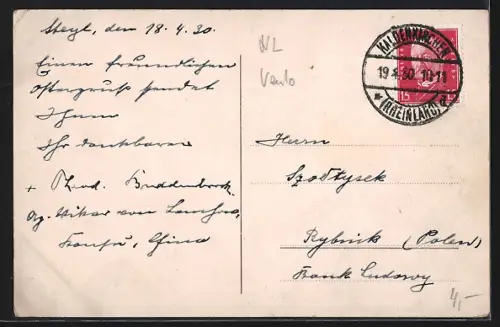 Steyl, den 18.4.30.
Einen freundlichen
Ostergruß sendet
Ihnen
Ihr dankbarer
+ Theod. Buddenbrock
Ap. Vikar von Lanchow,
Kansu, China
NL
Venlo
KALDENKIRCHEN
19.4.30 10-11
* (RHEINLAND) a
15 15
Herrn
Szołtysek
Rybnik (Polen)
Bank Ludowy
4,-